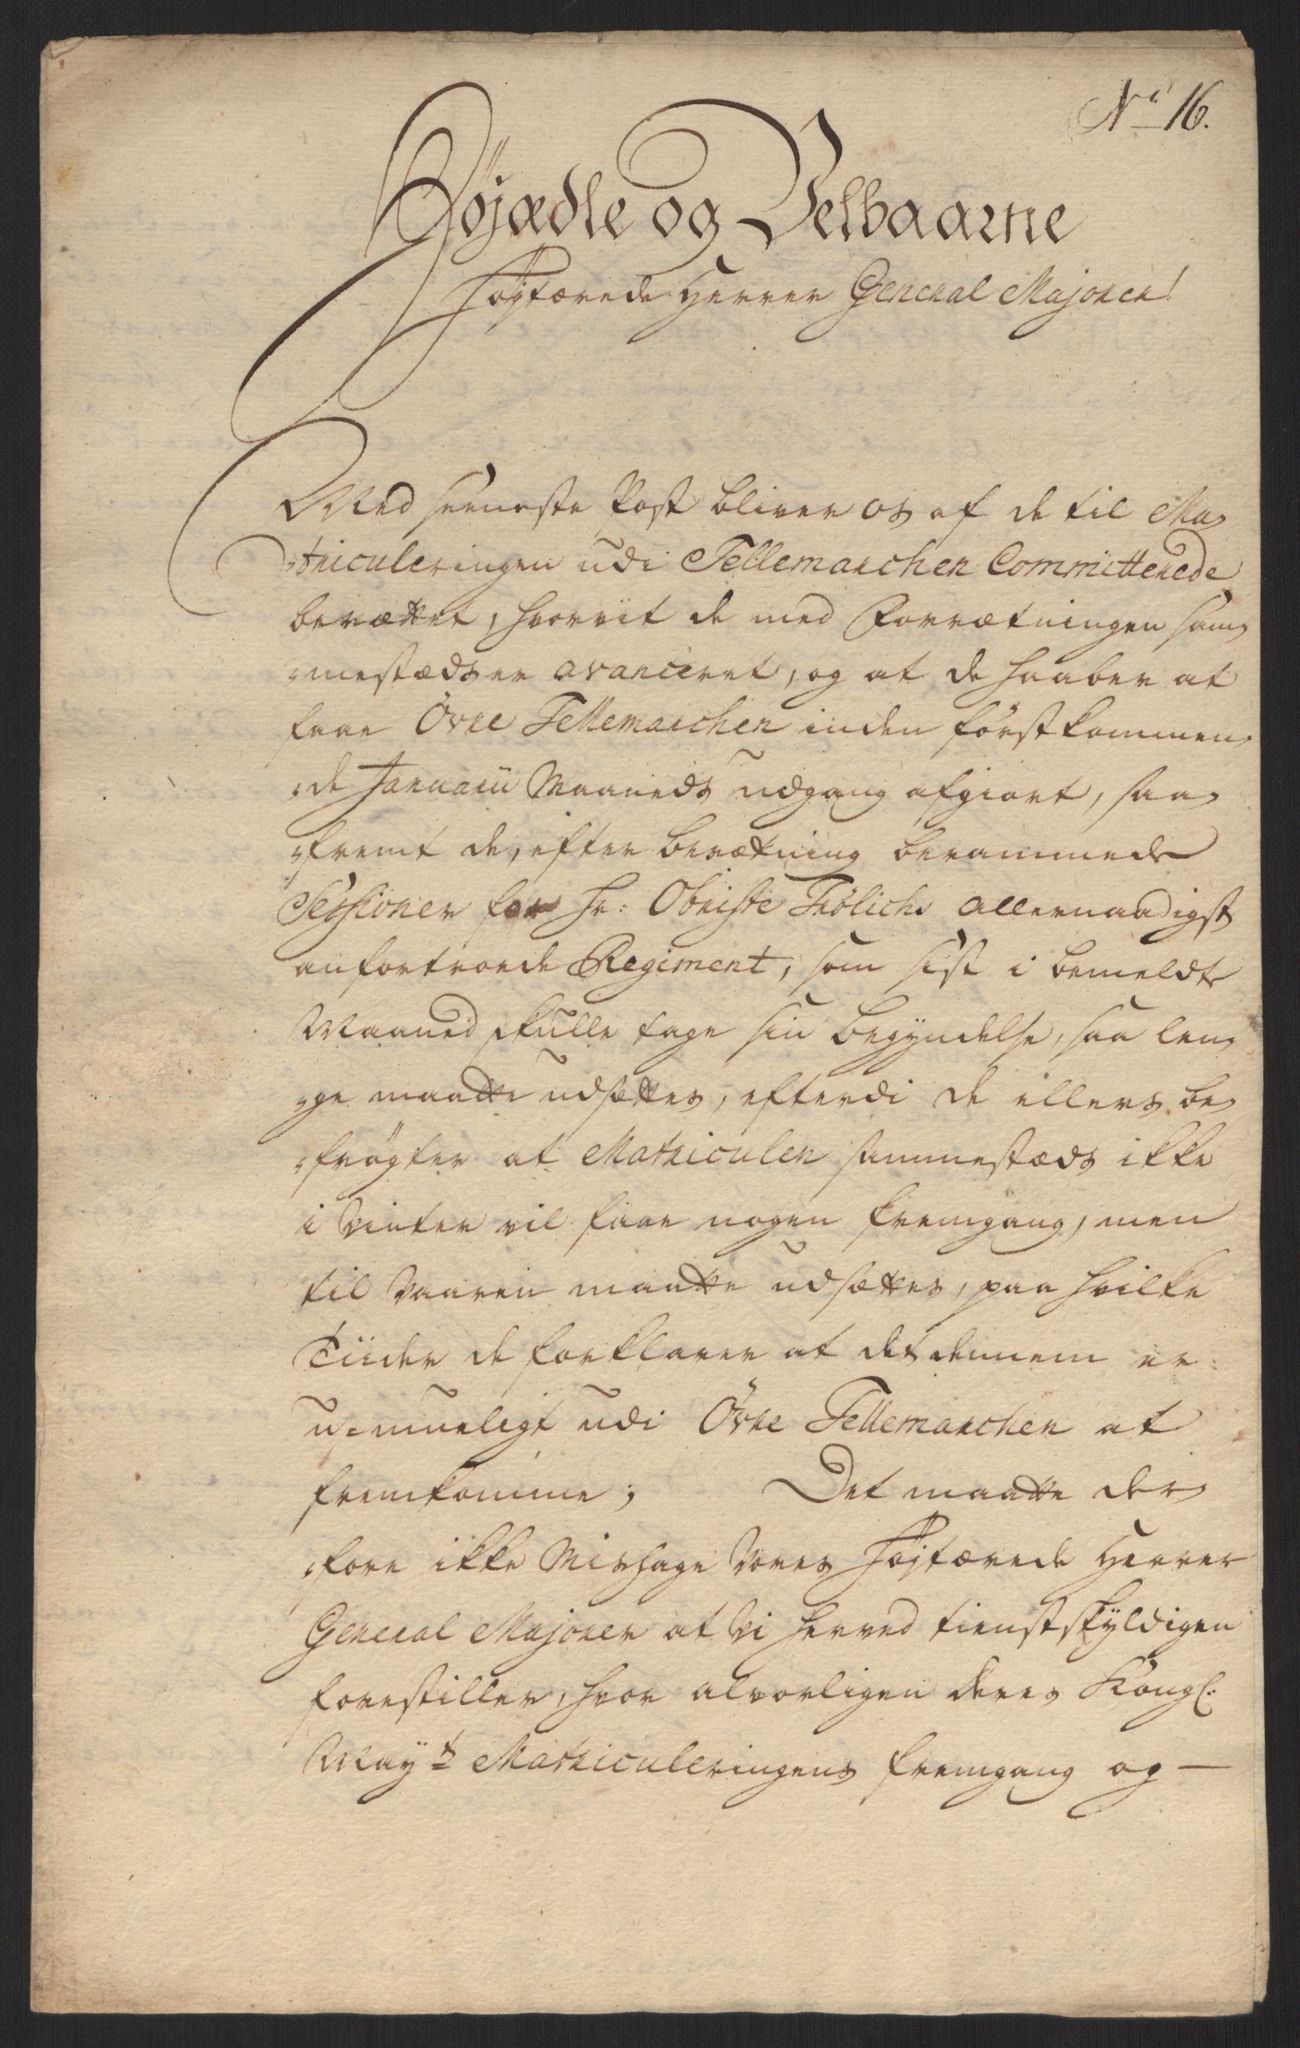 No 16.
Højædle og Velbaarne
Højtærede Herrer General Majorer!
Med seeneste Post bliver os af de til Ma„
„triculeringen udi Tellemarchen Committerede
berættet, hvorvit de med Forrætningen sam„
„mestæds er avanceret, og at de haaber at
faae Övre Tellemarchen inden förstkommen„
„de Januarii Maaneds udgang afgiort, saa„
„fremt de, efter berætning berammede
Sessioner for Hr: Obriste Frölichs allernaadigst
anfortroede Regiment, som sist i bemeldte
Maaned skulle tage sin begÿndelse, saa len„
„ge maatte udsættes, efterdi de ellers be„
„frögter at Matriculen sammestæds ikke
i Vinter vil faae nogen fremgang, men
til Vaaren maatte udsættes, paa hvilke
Tiider de forklarer at det dennem er
u-mueligt udi Övre Tellemarchen at
fremkomme; Det maatte der„
„fore ikke Mishage Vores Højtærede Herrer
General Majorer at Vi herved tienstskÿldigen
forestiller, hvor alvorligen deres Kongl:
Maÿts Matriculeringens fremgang og —